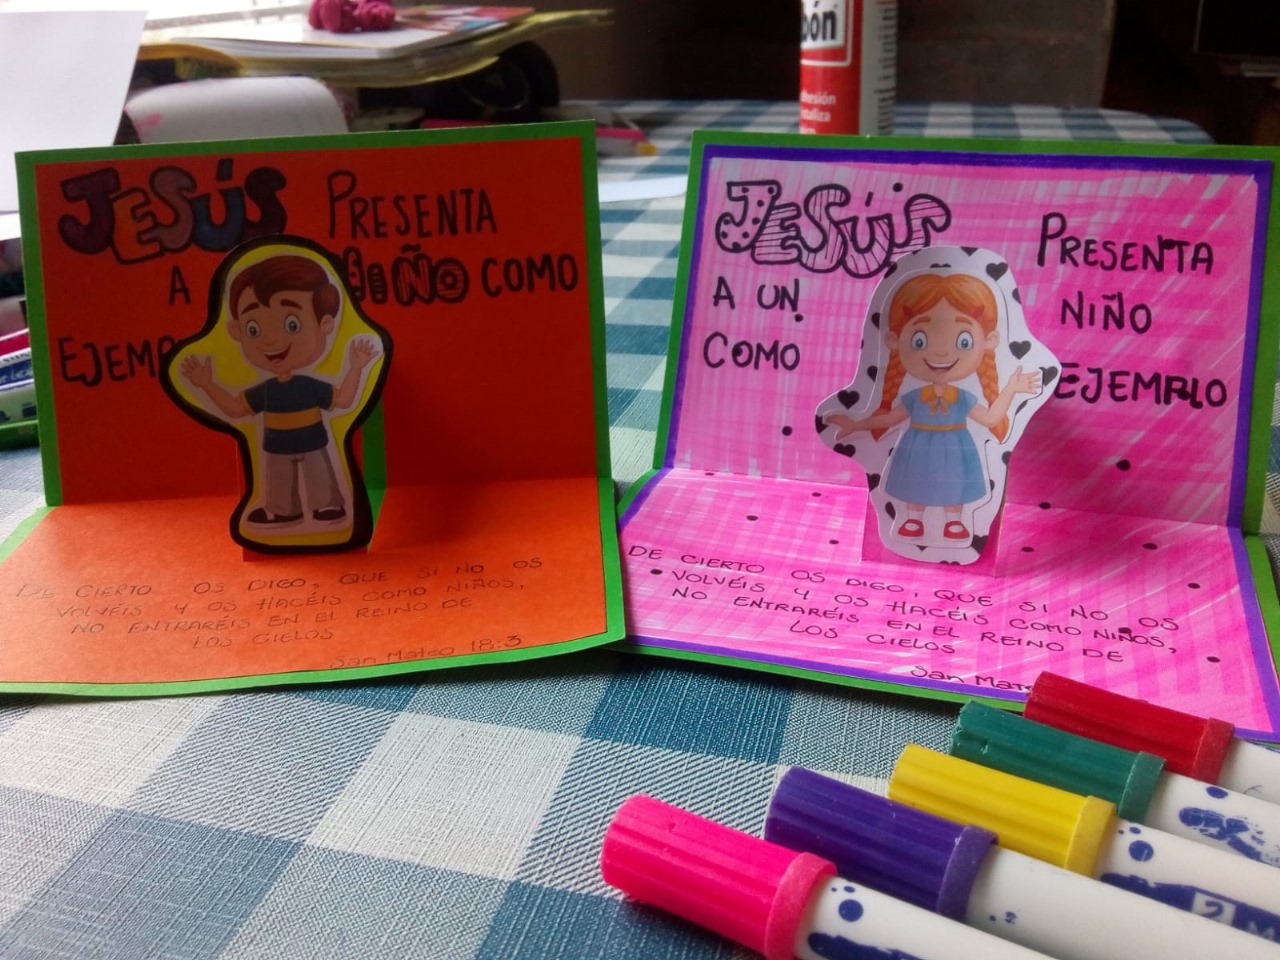 JESÚS PRESENTA
A NIÑO COMO
EJEMP
DE CIERTO OS DIGO, QUE SI NO OS
VOLVÉIS Y OS HACÉIS COMO NIÑOS,
NO ENTRARÉIS EN El REINO DE
LOS CIELOS
San Mateo 18:3
JESÚS PRESENTA
A UN NIÑO
COMO EJEMPLO
DE CIERTO OS DIGO, QUE SI NO OS
VOLVÉIS Y OS HACÉIS COMO NIÑOS,
NO ENTRARÉIS EN EL REINO DE
LOS CIELOS
San Mate
bón
dhesión
2 M